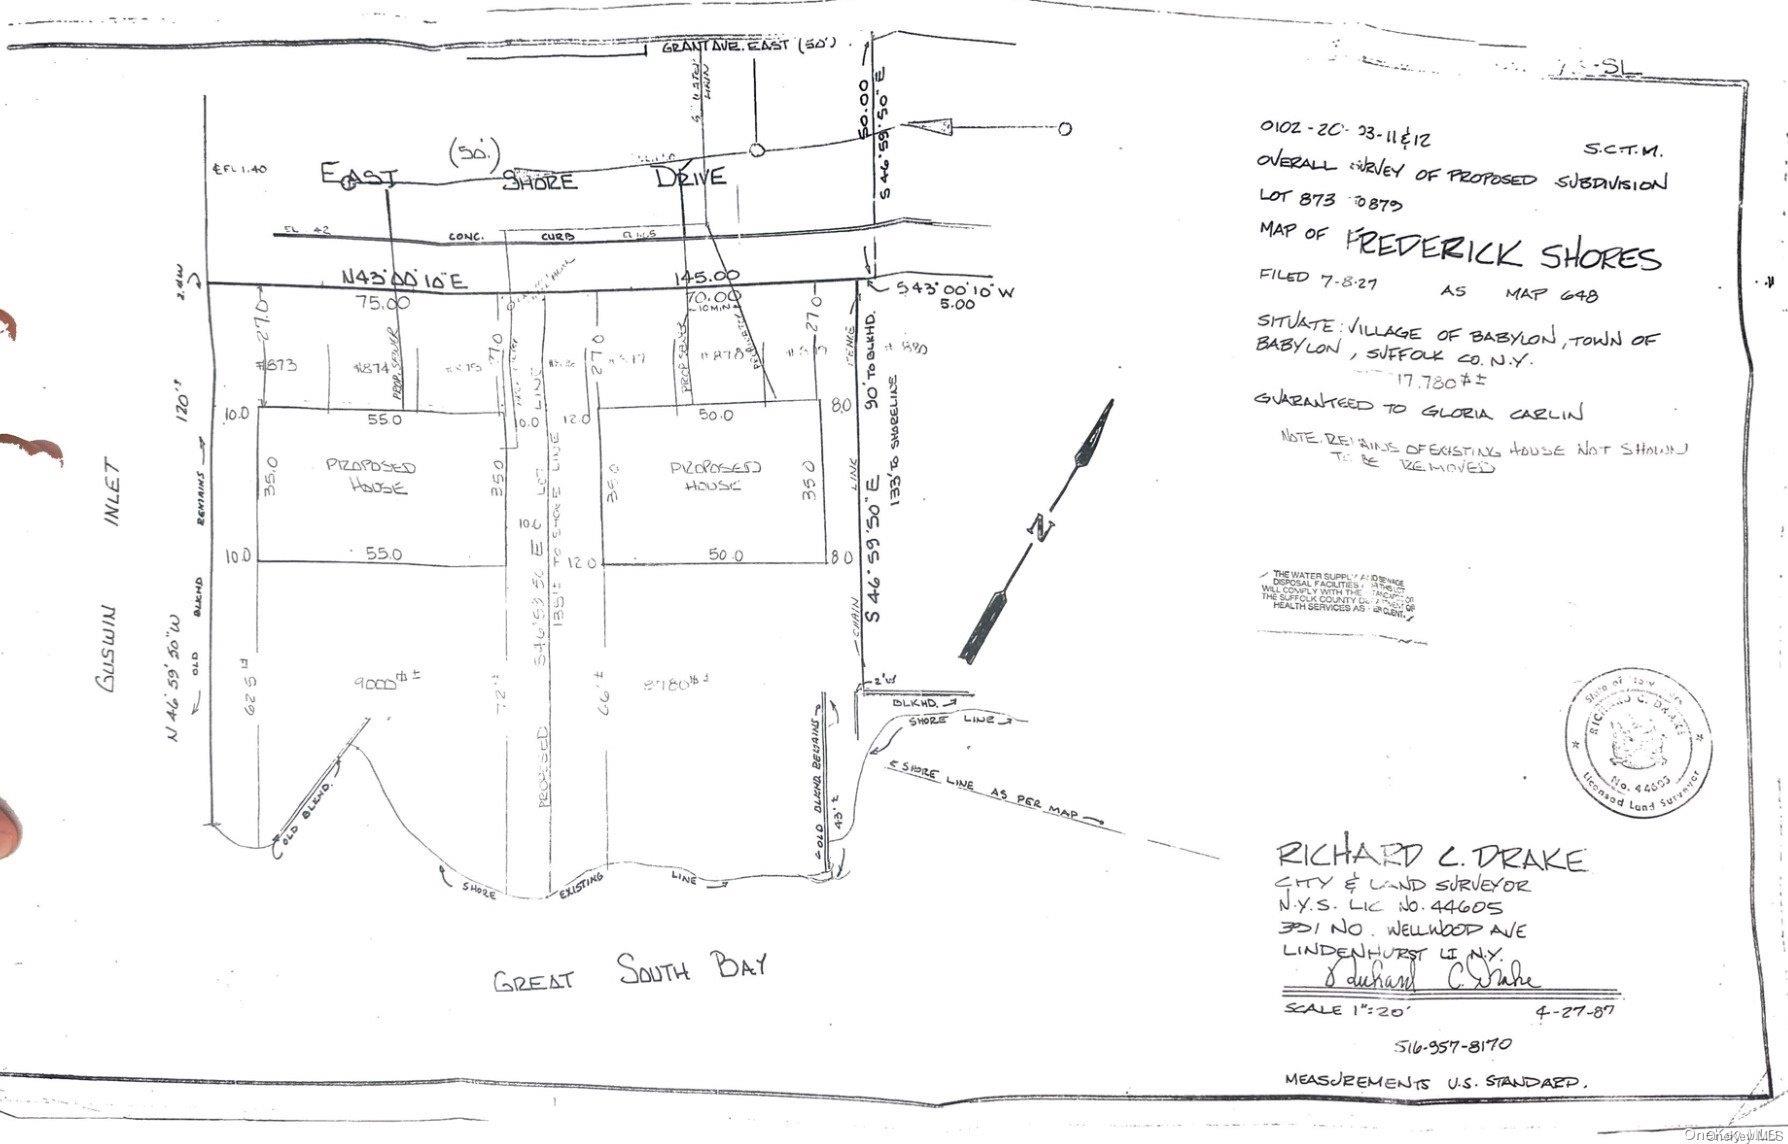 GRANT AVE. EAST (50')
50.00
S 46° 59' 50" E
(50')
EAST SHORE DRIVE
₠ EL 1.40
CONC. CURB
N43°00'10"E
145.00
75.00
70.00
S 43°00'10" W
5.00
27.0
27.0
27.0
27.0
#873
#874
#878
PROP. SEWER
120'±
10.0
55.0
12.0
50.0
8.0
PROPOSED
HOUSE
PROPOSED
HOUSE
35.0
35.0
35.0
35.0
10.0
55.0
12.0
50.0
8.0
10.0
LOT LINE
TO SHORE LINE
PROPOSED
CHAIN LINK FENCE
90' TO BLKHD.
133' TO SHORELINE
S 46° 59' 50" E
N 46° 59' 50" W
OLD BLKHD REMAINS
GUSWIN INLET
9000 #±
8780 #±
72'±
66'±
2'W
BLKHD.
SHORE LINE
SHORE LINE AS PER MAP
OLD BLKHD REMAINS
43'±
OLD BLKHD.
SHORE EXISTING LINE
GREAT SOUTH BAY
N
S.C.T.M.
OVERALL SURVEY OF PROPOSED SUBDIVISION
LOT 873 879
MAP OF FREDERICK SHORES
FILED 7-8-27 AS MAP 648
SITUATE: VILLAGE OF BABYLON, TOWN OF
BABYLON, SUFFOLK CO. N.Y.
17.780 #±
GUARANTEED TO GLORIA CARLIN
NOTE. REMAINS OF EXISTING HOUSE NOT SHOWN
TO BE REMOVED
THE WATER SUPPLY AND SEWAGE
DISPOSAL FACILITIES
WILL COMPLY WITH THE
THE SUFFOLK COUNTY DEPARTMENT OF
HEALTH SERVICES AS
RICHARD C. DRAKE
No. 44605
Licensed Land Surveyor
RICHARD C. DRAKE
CITY & LAND SURVEYOR
N.Y.S. LIC No. 44605
391 NO. WELLWOOD AVE
LINDENHURST LI N.Y.
Richard C. Drake
SCALE 1"=20' 4-27-87
516-957-8170
MEASUREMENTS U.S. STANDARD.